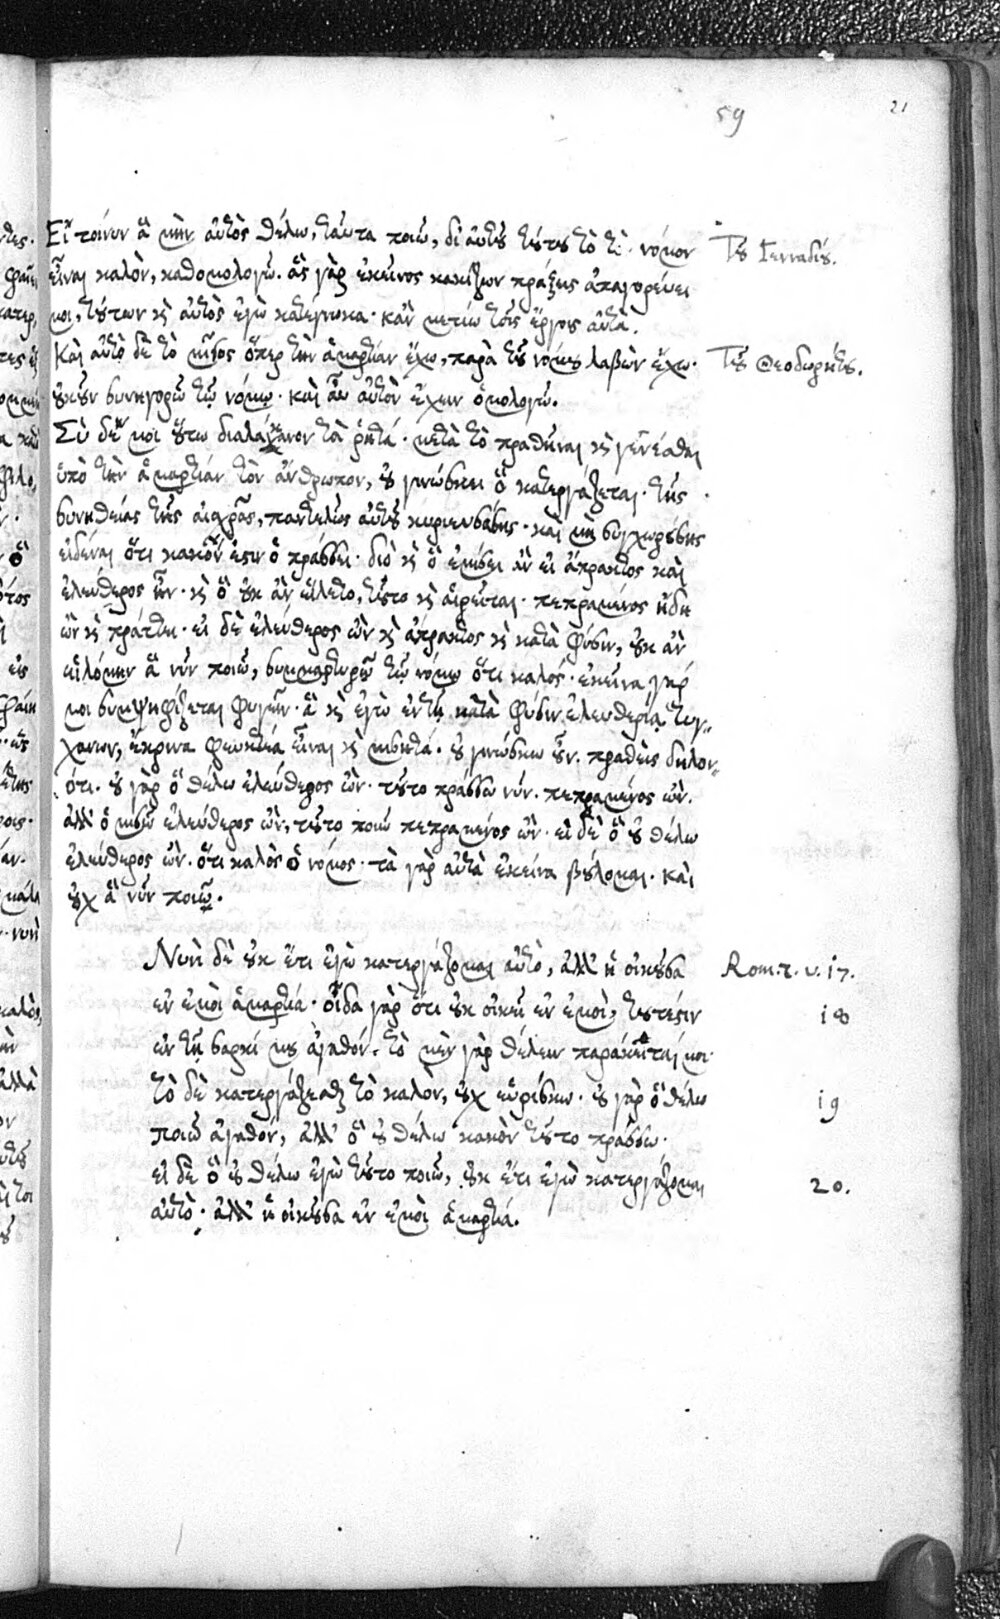 59
21
Εἰ τοίνυν ἃ μὴν αὐτὸς θέλω, ταῦτα ποιῶ, δι' αὐτοῦ τούτου τὸ τὸν νόμον
Τοῦ Γενναδίου.
εἶναι καλὸν, καθομολογῶ. ἃς γὰρ ἐκεῖνος κακίζων πράξεις ἀπαγορεύει
μοι, τούτων κỳ αὐτὸς ἐγὼ κατέγνωκα. κἂν μετίω τοῖς ἔργοις αὐτά.
Καὶ αὐτὸ δὲ τὸ μῖσος ὅπερ τὴν ἁμαρτίαν ἔχω, παρὰ τοῦ νόμου λαβὼν ἔχω.
Τοῦ Θεοδωρήτου.
οὐκοῦν συνηγορῶ τῷ νόμῳ. καὶ εὖ αὐτὸν ἔχειν ὁμολογῶ.
Σὺ δέ μοι οὕτω τὰ ῥητά. μετὰ τὸ πραθῆναι καὶ γενέσθαι
ὑπὸ τὴν ἁμαρτίαν τὸν ἄνθρωπον, οὐ γινώσκει ὃ κατεργάζεται. τῆς
συνηθείας τῆς αἰσχρᾶς, παντελῶς αὐτοῦ κυριευσάσης. καὶ μὴ συγχωρούσης
εἰδέναι ὅτι κακόν ἐστιν ὃ πράσσει. διὸ καὶ ὃ ἐμίσει ἂν εἰ ἄπρακτος καὶ
ἐλεύθερος ἦν. καὶ ὃ οὐκ ἂν εἵλετο, τοῦτο καὶ αἱρεῖται. πεπραμένος ἤδη
ὢν καὶ πράττει. εἰ δὲ ἐλεύθερος ὢν καὶ ἄπρακτος καὶ κατὰ φύσιν, οὐκ ἂν
εἱλόμην ἃ νῦν ποιῶ, συμμαρτυρῶ τῷ νόμῳ ὅτι καλός. ἐκεῖνα γάρ
μοι συμψηφίζεται φυγεῖν. ἃ καὶ ἐγὼ ἐν τῇ κατὰ φύσιν ἐλευθερίᾳ τυγ-
χάνων, ἔκρινα φευκτέα εἶναι καὶ μισητά. οὐ γινώσκω οὖν. πραθεὶς δηλον-
ότι. οὐ γὰρ ὃ θέλω ἐλεύθερος ὤν. τοῦτο πράσσω νῦν. πεπραμένος ὤν.
ἀλλ' ὃ μισῶ ἐλεύθερος ὢν, τοῦτο ποιῶ πεπραμένος ὤν. εἰ δὲ ὃ οὐ θέλω
ἐλεύθερος ὤν. ὅτι καλὸς ὁ νόμος. τὰ γὰρ αὐτὰ ἐκεῖνα βούλομαι. καὶ
οὐχ ἃ νῦν ποιῶ.
Νυνὶ δὲ οὐκ ἔτι ἐγὼ κατεργάζομαι αὐτὸ, ἀλλ' ἡ οἰκοῦσα
Rom. 7. v. 17.
ἐν ἐμοὶ ἁμαρτία. οἶδα γὰρ ὅτι οὐκ οἰκεῖ ἐν ἐμοὶ, τουτέστιν
18
ἐν τῇ σαρκί μου ἀγαθόν. τὸ μὲν γὰρ θέλειν παράκειταί μοι.
τὸ δὲ κατεργάζεσθαι τὸ καλὸν, οὐχ εὑρίσκω. οὐ γὰρ ὃ θέλω
19
ποιῶ ἀγαθόν, ἀλλ' ὃ οὐ θέλω κακὸν τοῦτο πράσσω.
εἰ δὲ ὃ οὐ θέλω ἐγὼ τοῦτο ποιῶ, οὐκ ἔτι ἐγὼ κατεργάζομαι
20.
αὐτὸ. ἀλλ' ἡ οἰκοῦσα ἐν ἐμοὶ ἁμαρτία.